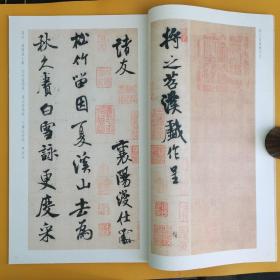 將之苕溪戲作呈
諸友 襄陽漫仕黻
松竹留因夏溪山去為
秋久賡白雪詠更度采